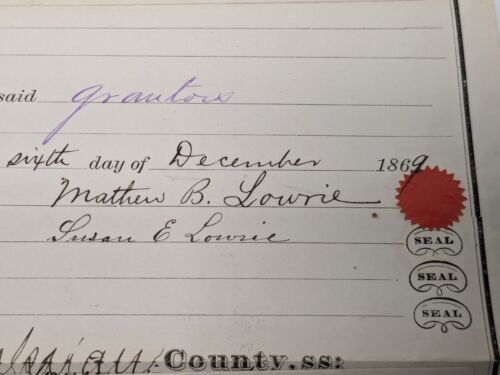 said grantors
sixth day of December 1869
Mathew B. Lowrie
Susan E Lowrie
SEAL
SEAL
SEAL
County, ss: